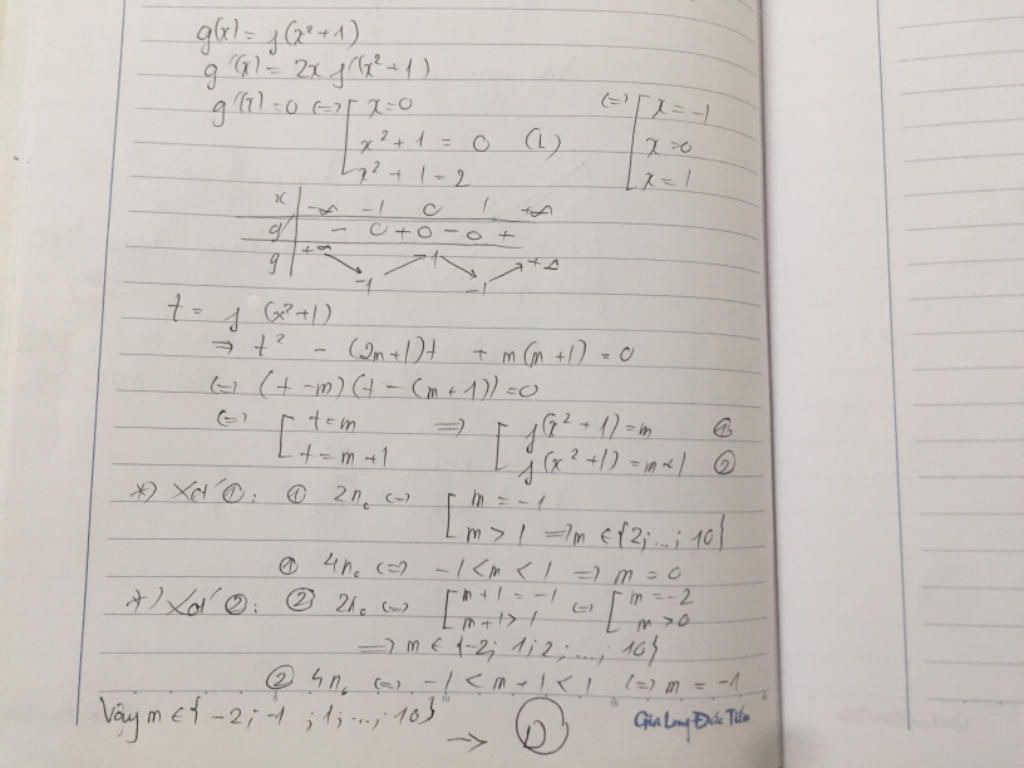 g(x) = f(x²+1)
g'(x) = 2x f'(x²+1)
g'(x) = 0 (=) [ x=0 (=) [ x = -1
x² + 1 = 0 (L) x = 0
x² + 1 = 2 x = 1
x | -∞ -1 0 1 +∞
g' | - 0 + 0 - 0 +
g | +∞ -1 1 -1 +∞
t = f (x²+1)
⇒ t² - (2m+1)t + m(m+1) = 0
(=) (t - m)(t - (m+1)) = 0
(=) [ t = m ⇒ [ f(x²+1) = m ①
t = m+1 f(x²+1) = m+1 ②
*) Xét ①: ① 2n₀ (=) [ m = -1
m > 1 ⇒ m ∈ {2; ...; 10}
① 4n₀ (=) -1 < m < 1 ⇒ m = 0
*) Xét ②: ② 2n₀ (=) [ m+1 = -1 (=) [ m = -2
m+1 > 1 m > 0
⇒ m ∈ {-2; 1; 2; ...; 10}
② 4n₀ (=) -1 < m+1 < 1 (=) m = -1
Vậy m ∈ { -2; -1 ; 1; ...; 10}
→ D
Gia Long Đức Tiến